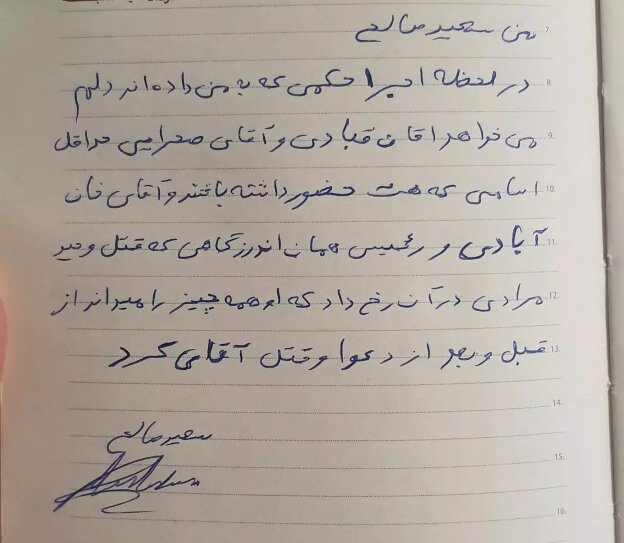 من سعید صالحی
در لحظه اجرا حکمی که به من داده‌اند دلم
می خواهد اقای قبادی و آقای صحرایی حداقل
اسامی که هست حضور داشته باشند و آقای خان
آبادی و رئیس همان اندرزگاهی که قتل وحید
مرادی در آن رخ داد که او همه چیز را میداند از
قبل و بعد از دعوا و قتل آقای کرد
سعید صالحی
7.
8.
9.
10.
11.
12.
13.
14.
15.
16.